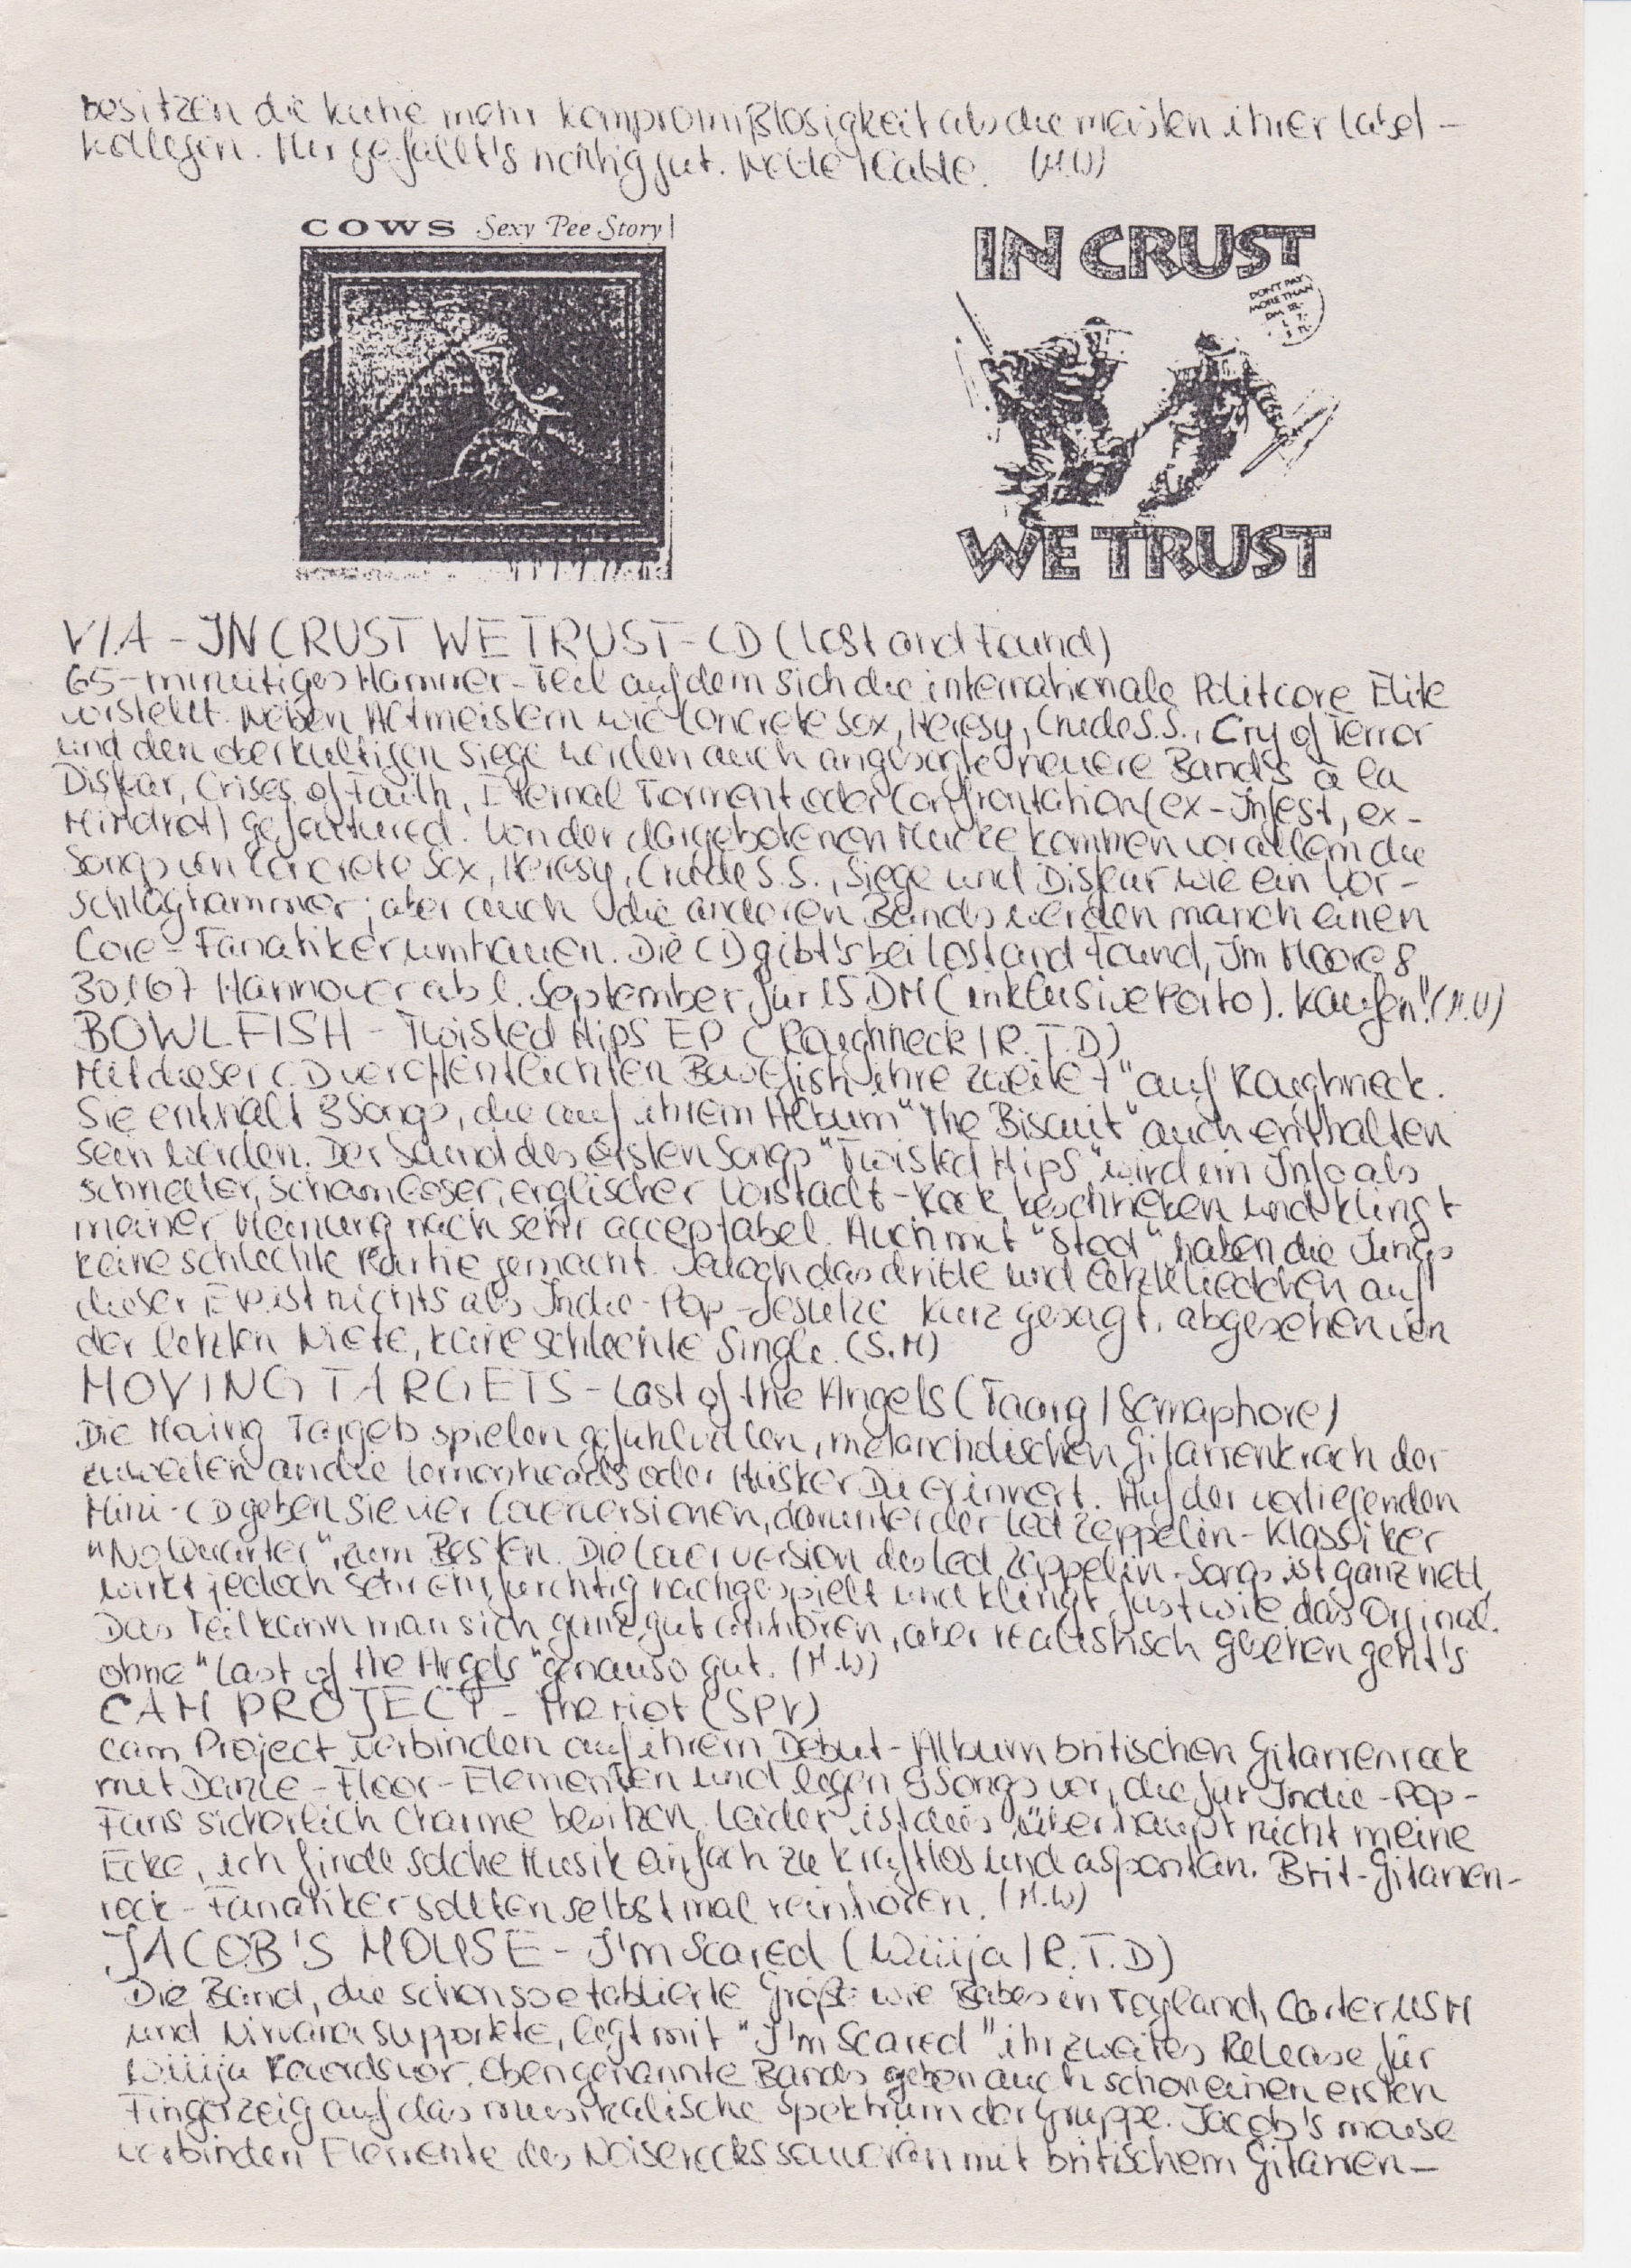 besitzen die Kühe mehr Kompromißlosigkeit als die meisten ihrer Label-
kollegen. Mir gefällt's richtig gut. Nette Platte. (M.W)
COWS Sexy Pee Story
IN CRUST
DON'T PAY
MORE THAN
DM
WE TRUST
V/A - IN CRUST WE TRUST - CD (Lost and Found)
65-minütiges Hammer-Teil auf dem sich die internationale Politcore Elite
vorstellt. Neben Altmeistern wie Concrete Sox, Heresy, Crude S.S., Cry of Terror
und den oberkultigen Siege werden auch angesagte neuere Bands à la
Disfear, Crises of Faith, Eternal Torment oder Confrontation (ex-Infest, ex-
Mindrot) gefeatured. Von der dargebotenen Mucke kommen vor allem die
Songs von Concrete Sox, Heresy, Crude S.S., Siege und Disfear wie ein Vor-
schlaghammer; aber auch die anderen Bands werden manch einen
Core-Fanatiker umhauen. Die CD gibt's bei Lost and Found, Im Moore 8
30167 Hannover ab 1. September für 15 DM (inklusive Porto). Kaufen!! (M.W)
BOWLFISH - Twisted Hips EP (Roughneck / R.T.D)
Mit dieser CD veröffentlichten Bowlfish ihre zweite 7" auf Roughneck.
Sie enthält 3 Songs, die auf ihrem Album "The Biscuit" auch enthalten
sein werden. Der Sound des ersten Songs "Twisted Hips" wird im Info als
schneller, schamloser, englischer Vorstadt-Rock beschrieben und klingt
meiner Meinung nach sehr acceptabel. Auch mit "Stod" haben die Jungs
keine schlechte Partie gemacht. Jedoch das dritte und letzte Liedchen auf
dieser EP ist nichts als Indie-Pop-Gesülze. Kurz gesagt, abgesehen von
der letzten Niete, keine schlechte Single. (S.M)
MOVING TARGETS - Last of the Angels (Taang / Semaphore)
Die Moving Targets spielen gefühlvollen, melancholischen Gitarrenkrach der
zuweilen an die Lemonheads oder Hüsker Dü erinnert. Auf der vorliegenden
Mini-CD geben Sie vier Coverversionen, darunter der Led Zeppelin-Klassiker
"No Quarter", zum Besten. Die Coverversion des Led Zeppelin-Songs ist ganz nett,
wirkt jedoch sehr ehrfürchtig nachgespielt und klingt fast wie das Orginal.
Das Teil kann man sich ganz gut anhören, aber realistisch gesehen geht's
ohne "Last of the Angels" genauso gut. (M.W)
CAM PROJECT - the riot (SPV)
Cam Project verbinden auf ihrem Debut-Album britischen Gitarrenrock
mit Dance-Floor-Elementen und legen 8 Songs vor, die für Indie-Pop-
Fans sicherlich Charme besitzen. Leider ist dies überhaupt nicht meine
Ecke, ich finde solche Musik einfach zu kraftlos und aspontan. Brit-Gitarren-
rock-Fanatiker sollten selbst mal reinhören. (M.W)
JACOB'S MOUSE - I'm Scared (Wiiija / R.T.D)
Die Band, die schon so etablierte Größe wie Babes in Toyland, Carter USM
und Nirvana supportete, legt mit "I'm Scared" ihr zweites Release für
Wiiija Records vor. Ebengenannte Bands geben auch schon einen ersten
Fingerzeig auf das musikalische Spektrum der Gruppe. Jacob's mouse
verbinden Elemente des Noiserocks souverän mit britischem Gitarren-